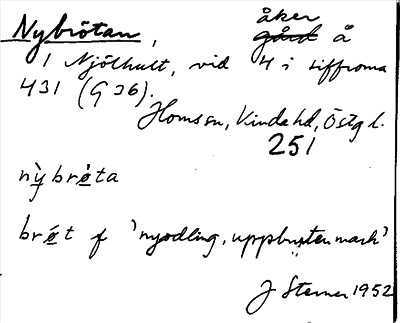 Nybrötan, åker å
1 Njölhult, vid 4 i siffrorna
431 (G 36).
Horns sn, Kinda hd, Östg l.
251
nỳ brǿta
brǿt f 'nyodling, uppbruten mark'
J Sterner 1952